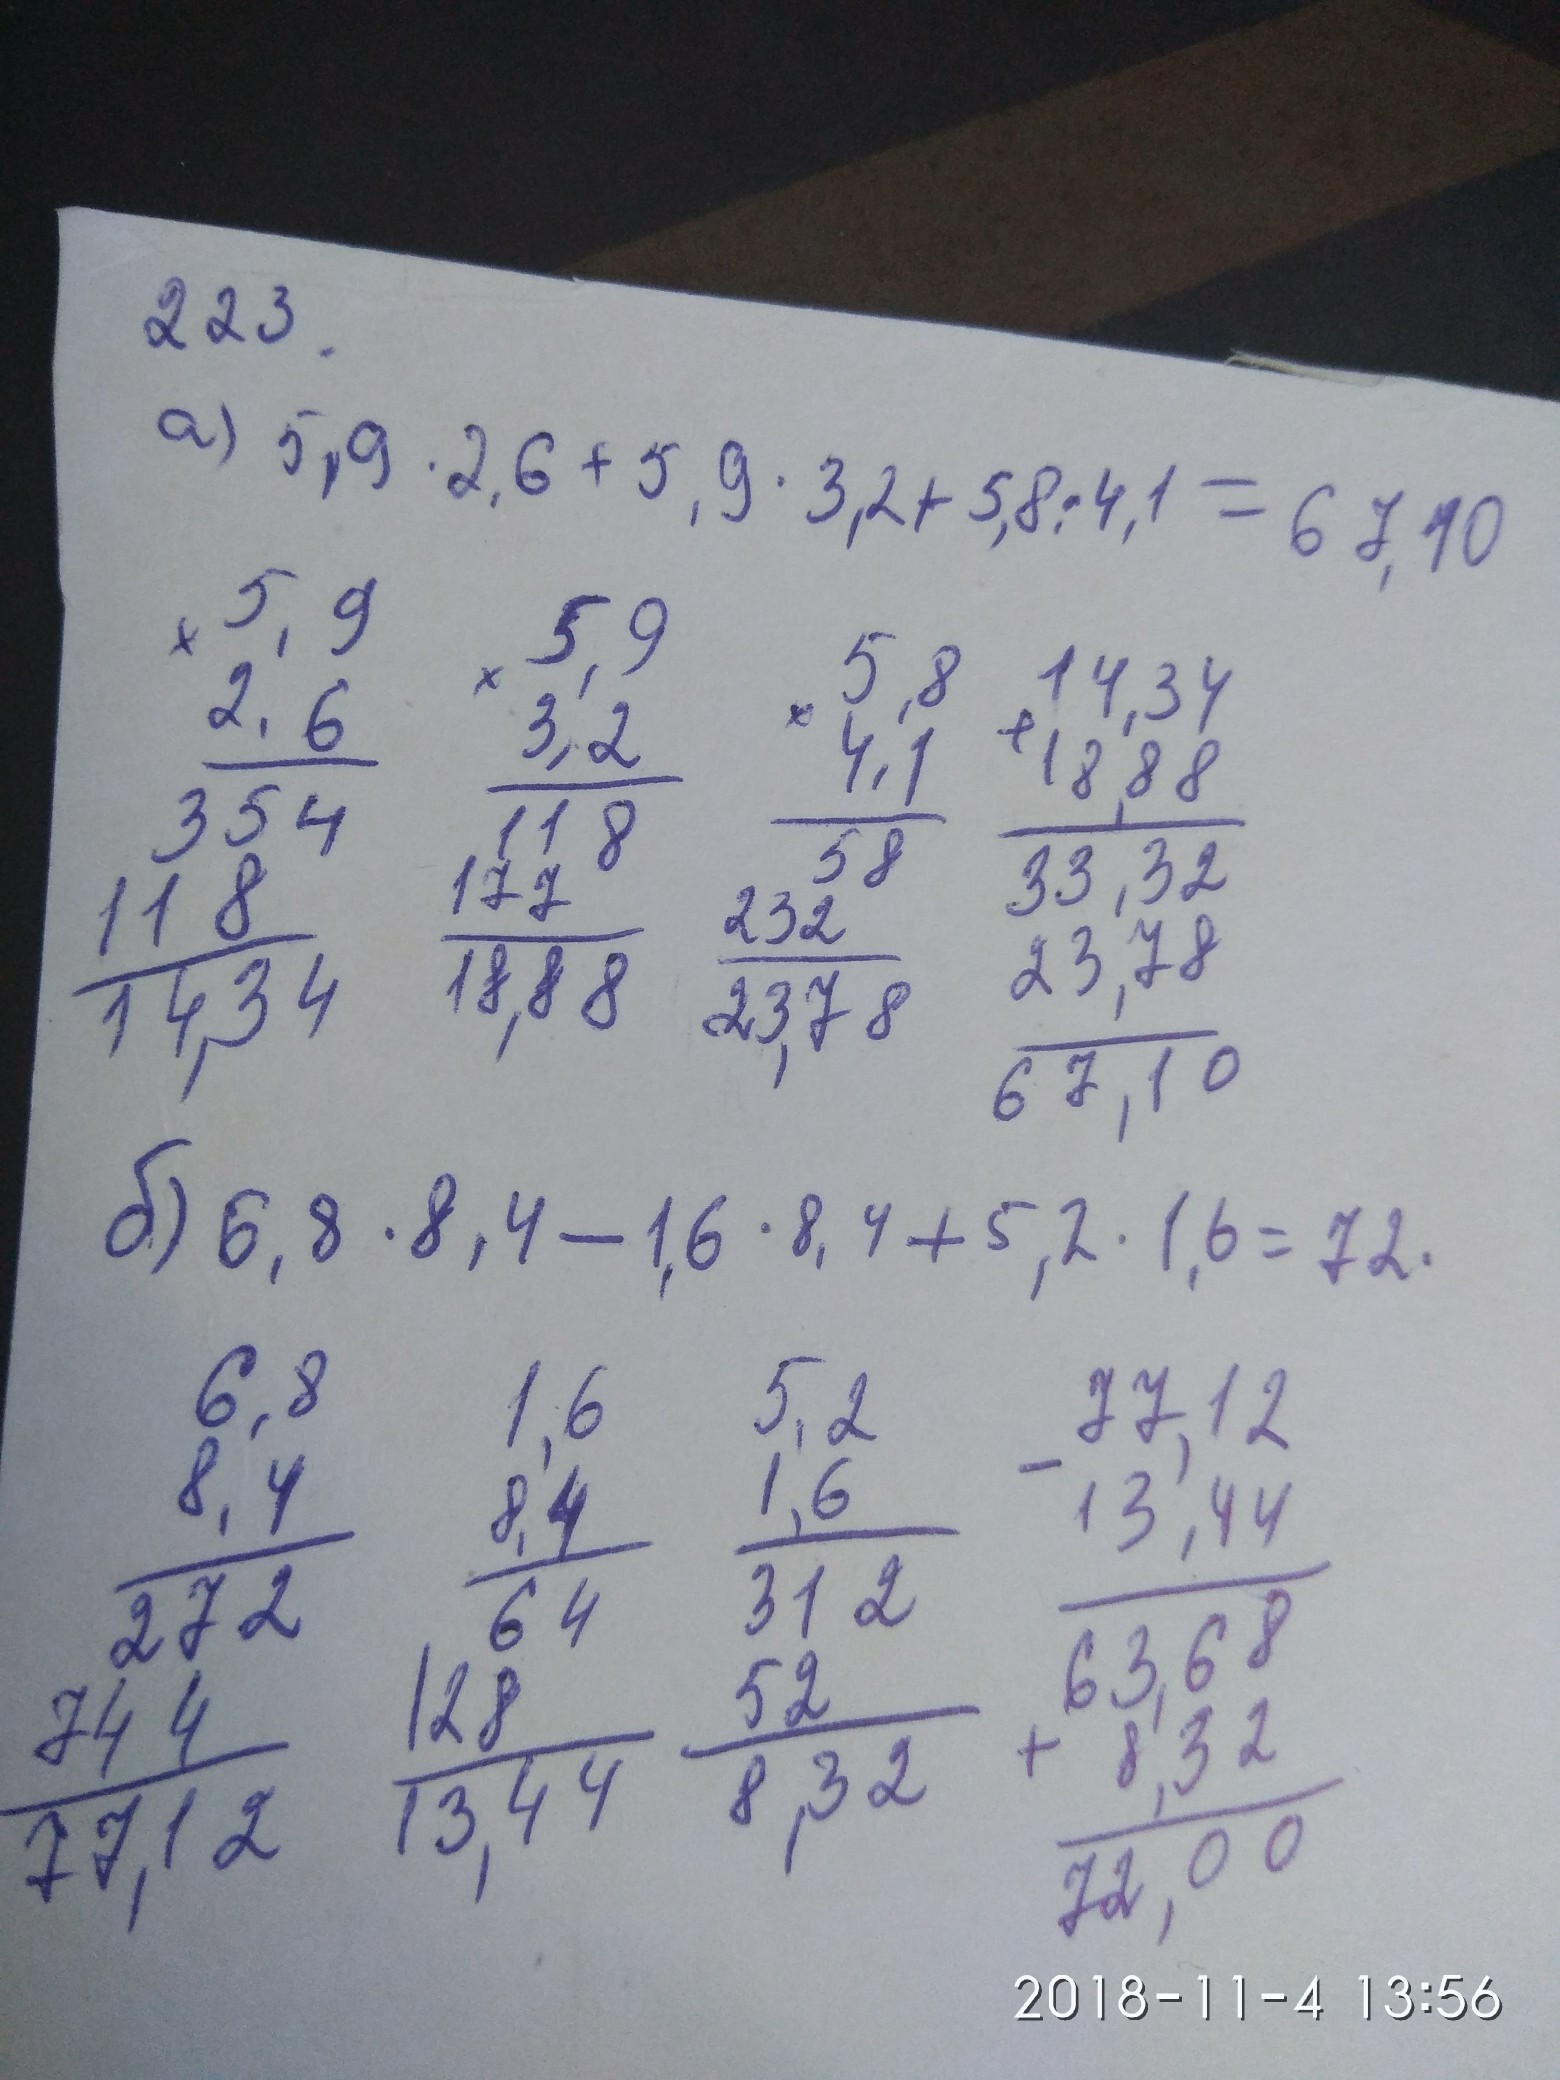 223.
а) 5,9 · 2,6 + 5,9 · 3,2 + 5,8 · 4,1 = 67,10
× 5,9 × 5,9 × 5,8 + 14,34
2,6 3,2 4,1 18,88
354 118 58 33,32
118 177 232 23,78
14,34 18,88 23,78 67,10
б) 6,8 · 8,4 − 1,6 · 8,4 + 5,2 · 1,6 = 72.
6,8 1,6 5,2 − 77,12
8,4 8,4 1,6 13,44
272 64 312 63,68
744 128 52 + 8,32
77,12 13,44 8,32 72,00
2018-11-4 13:56